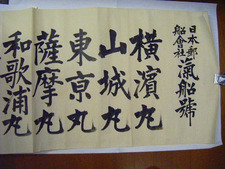 日本郵船會社
滊船號
横濱丸
山城丸
東京丸
薩摩丸
和歌浦丸